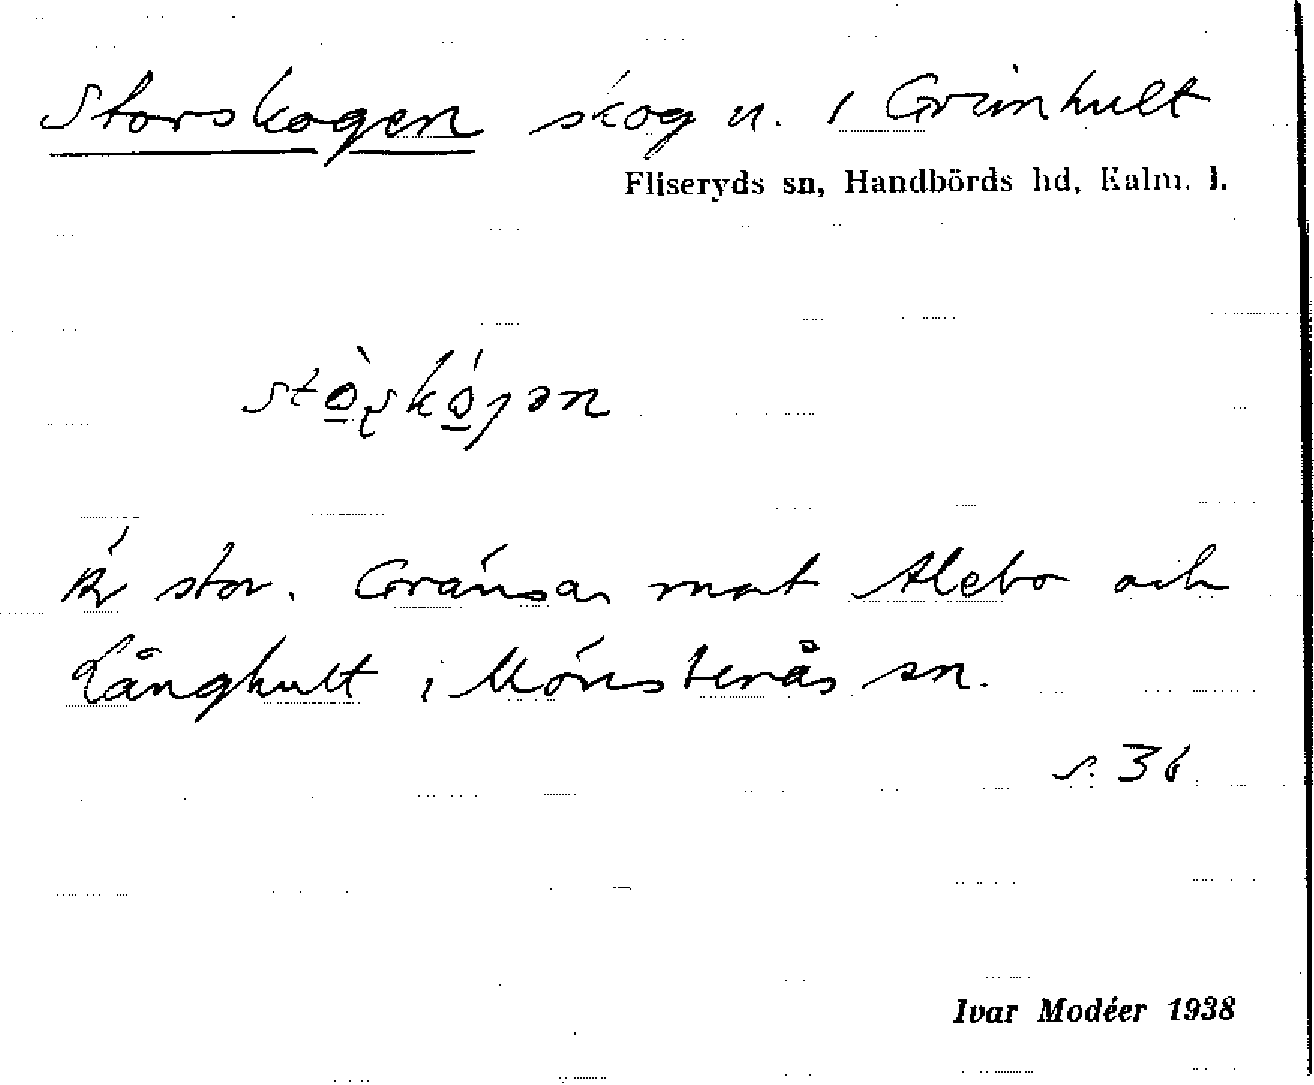 Storskogen skog n. i Grimhult
Fliseryds sn, Handbörds hd, Kalm. l.
Är stor. Gränsar mot Alebo och
Långhult i Mönsterås sn.
s. 36.
Ivar Modéer 1938